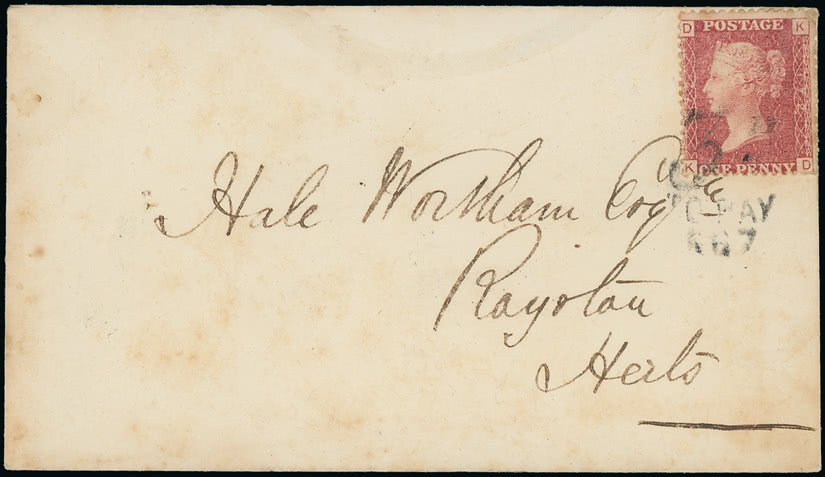 D POSTAGE K
K ONE PENNY D
TO PAY
Hale Wortham Esqr
Royston
Herts